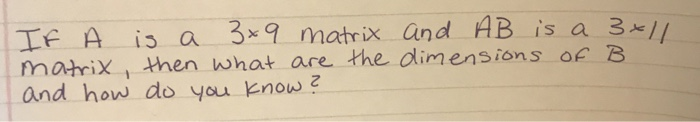 If A is a 3×9 matrix and AB is a 3×11
matrix, then what are the dimensions of B
and how do you know?